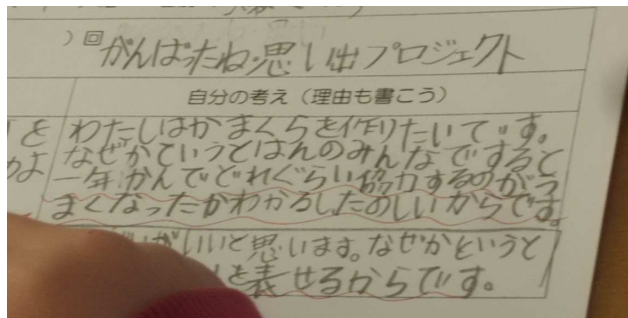 ）回
がんばったね思い出プロジェクト
自分の考え（理由も書こう）
を わたしはかまくらを作りたいです。
よ なぜかというとはんのみんなですると
一年かんでどれぐらい協力するのがう
まくなったかわかるしたのしいからです。
がいいと思います。なぜかというと
を表せるからです。